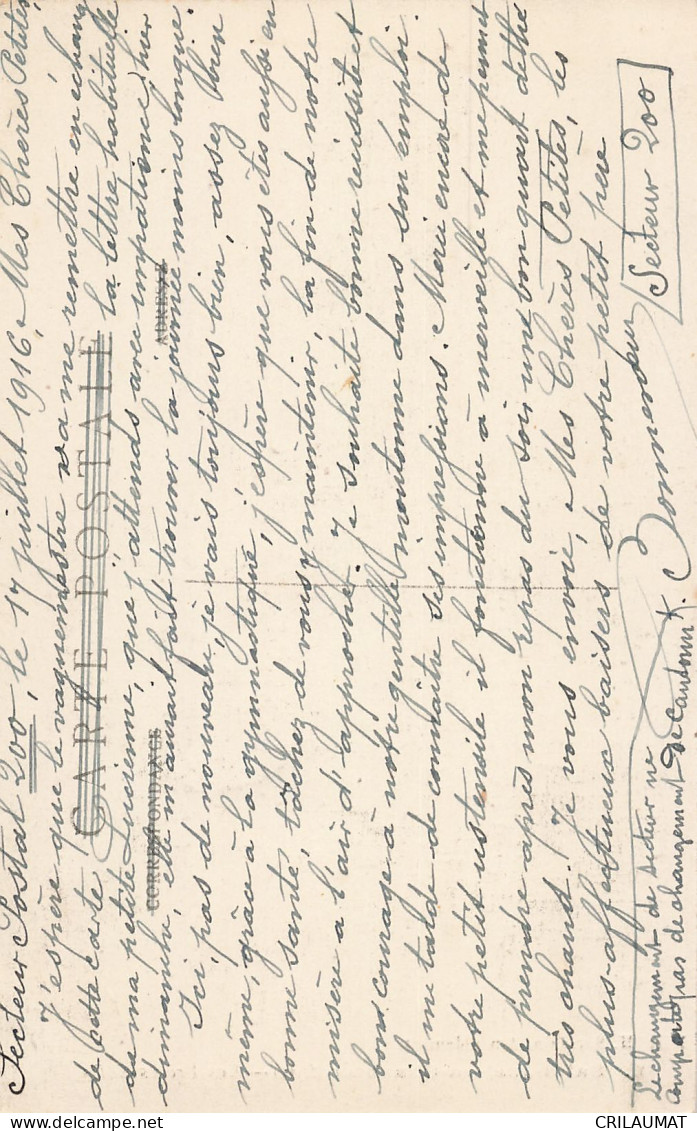 Secteur Postal 200, le 17 juillet 1916. Mes Chères Petites,
J'espère que le vaguemestre va me remettre en échange
de cette carte la lettre habituelle
CARTE POSTALE
de ma petite Lucienne, que j'attends avec impatience; hier
CORRESPONDANCE
ADRESSE
dimanche, elle m'aurait fait trouver la journée moins longue.
Ici, pas de nouveau, je vais toujours bien, assez bien
même, grâce à la gymnastique, j'espère que vous êtes aussi en
bonne santé, tâchez de vous y maintenir, la fin de notre
misère a l'air d'approcher. Je souhaite bonne réussite et
bon courage à notre gentille moutonne dans son emploi.
il me tarde de connaître ses impressions. Merci encore de
votre petit ustensile il fonctionne à merveille et me permet
de prendre après mon repas du soir un bon quart de thé
très chaud. Je vous envoie, Mes Chères Petites, les
plus affectueux baisers de votre petit père
Secteur 200
Le changement de secteur ne
comporte pas de changement de cantonnt.